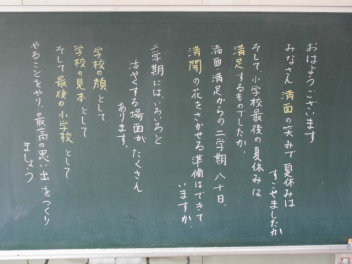 おはようございます
みなさん 満面の笑みで夏休みは
すごせましたか
そして小学校最後の夏休みは
満足するものでしたか。
満面 満足からの二学期 八十日、
満開の花をさかせる準備はできて
いますか。
二学期にはいろいろと
活やくする場面がたくさん
あります。
学校の顔として
学校の見本として
そして最後の小学校として
やることをやり、最高の思い出をつくり
ましょう